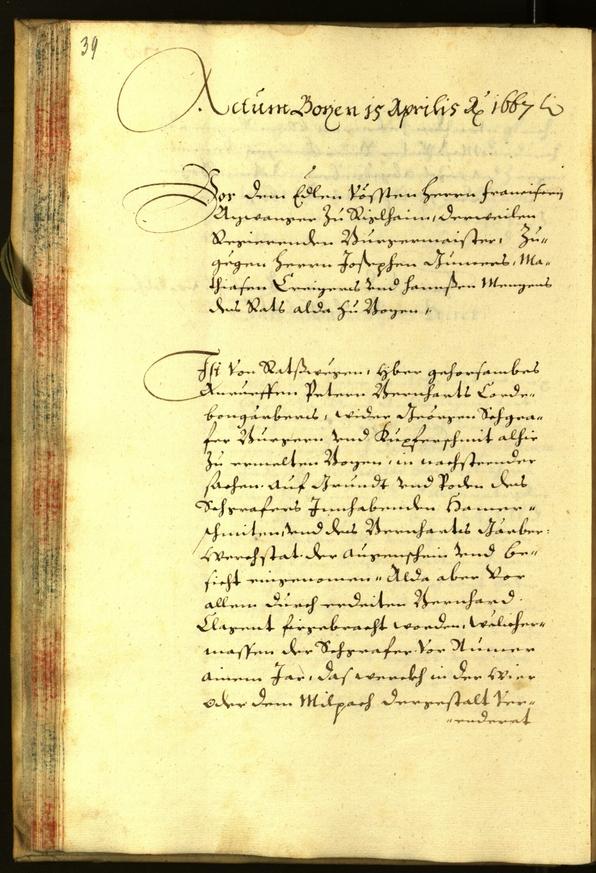 39
Actum Bozen 15 Aprilis Aō 1667
Vor dem Edlen Vössten Herrn Francisscen
Azwanger zu Rizlhaim, derweilen
Regierenden Burgermaister, Zu-
gegen Herrn Josephen Gumers, Ma-
thiasen Creizens vnd Hannsen Menzens
des Rats alda zu Bozen.
Ist von Ratßwegen, yber gehorsambes
Anrueffen Petern Bernharts Corde-
bongärbers, wider Geörgen Schgra-
fer Burgern vnd Kupferschmit alhie
zu ermelten Bozen, in nachsteender
sachen auf Grundt vnd Poden des
Schgrafers Innhabenden Hamer-
schmiten, vnd des Bernharts Gärber-
werchstat der augenschein vnd be-
sicht eingenomen. Alda aber vor
allem durch erdeiten Bernhard
Clagent firgebracht worden, welicher-
massen der Schgrafer vor
ainem Jar, das werckh in der Wier
oder dem Milpach dergestalt ver-
enderet